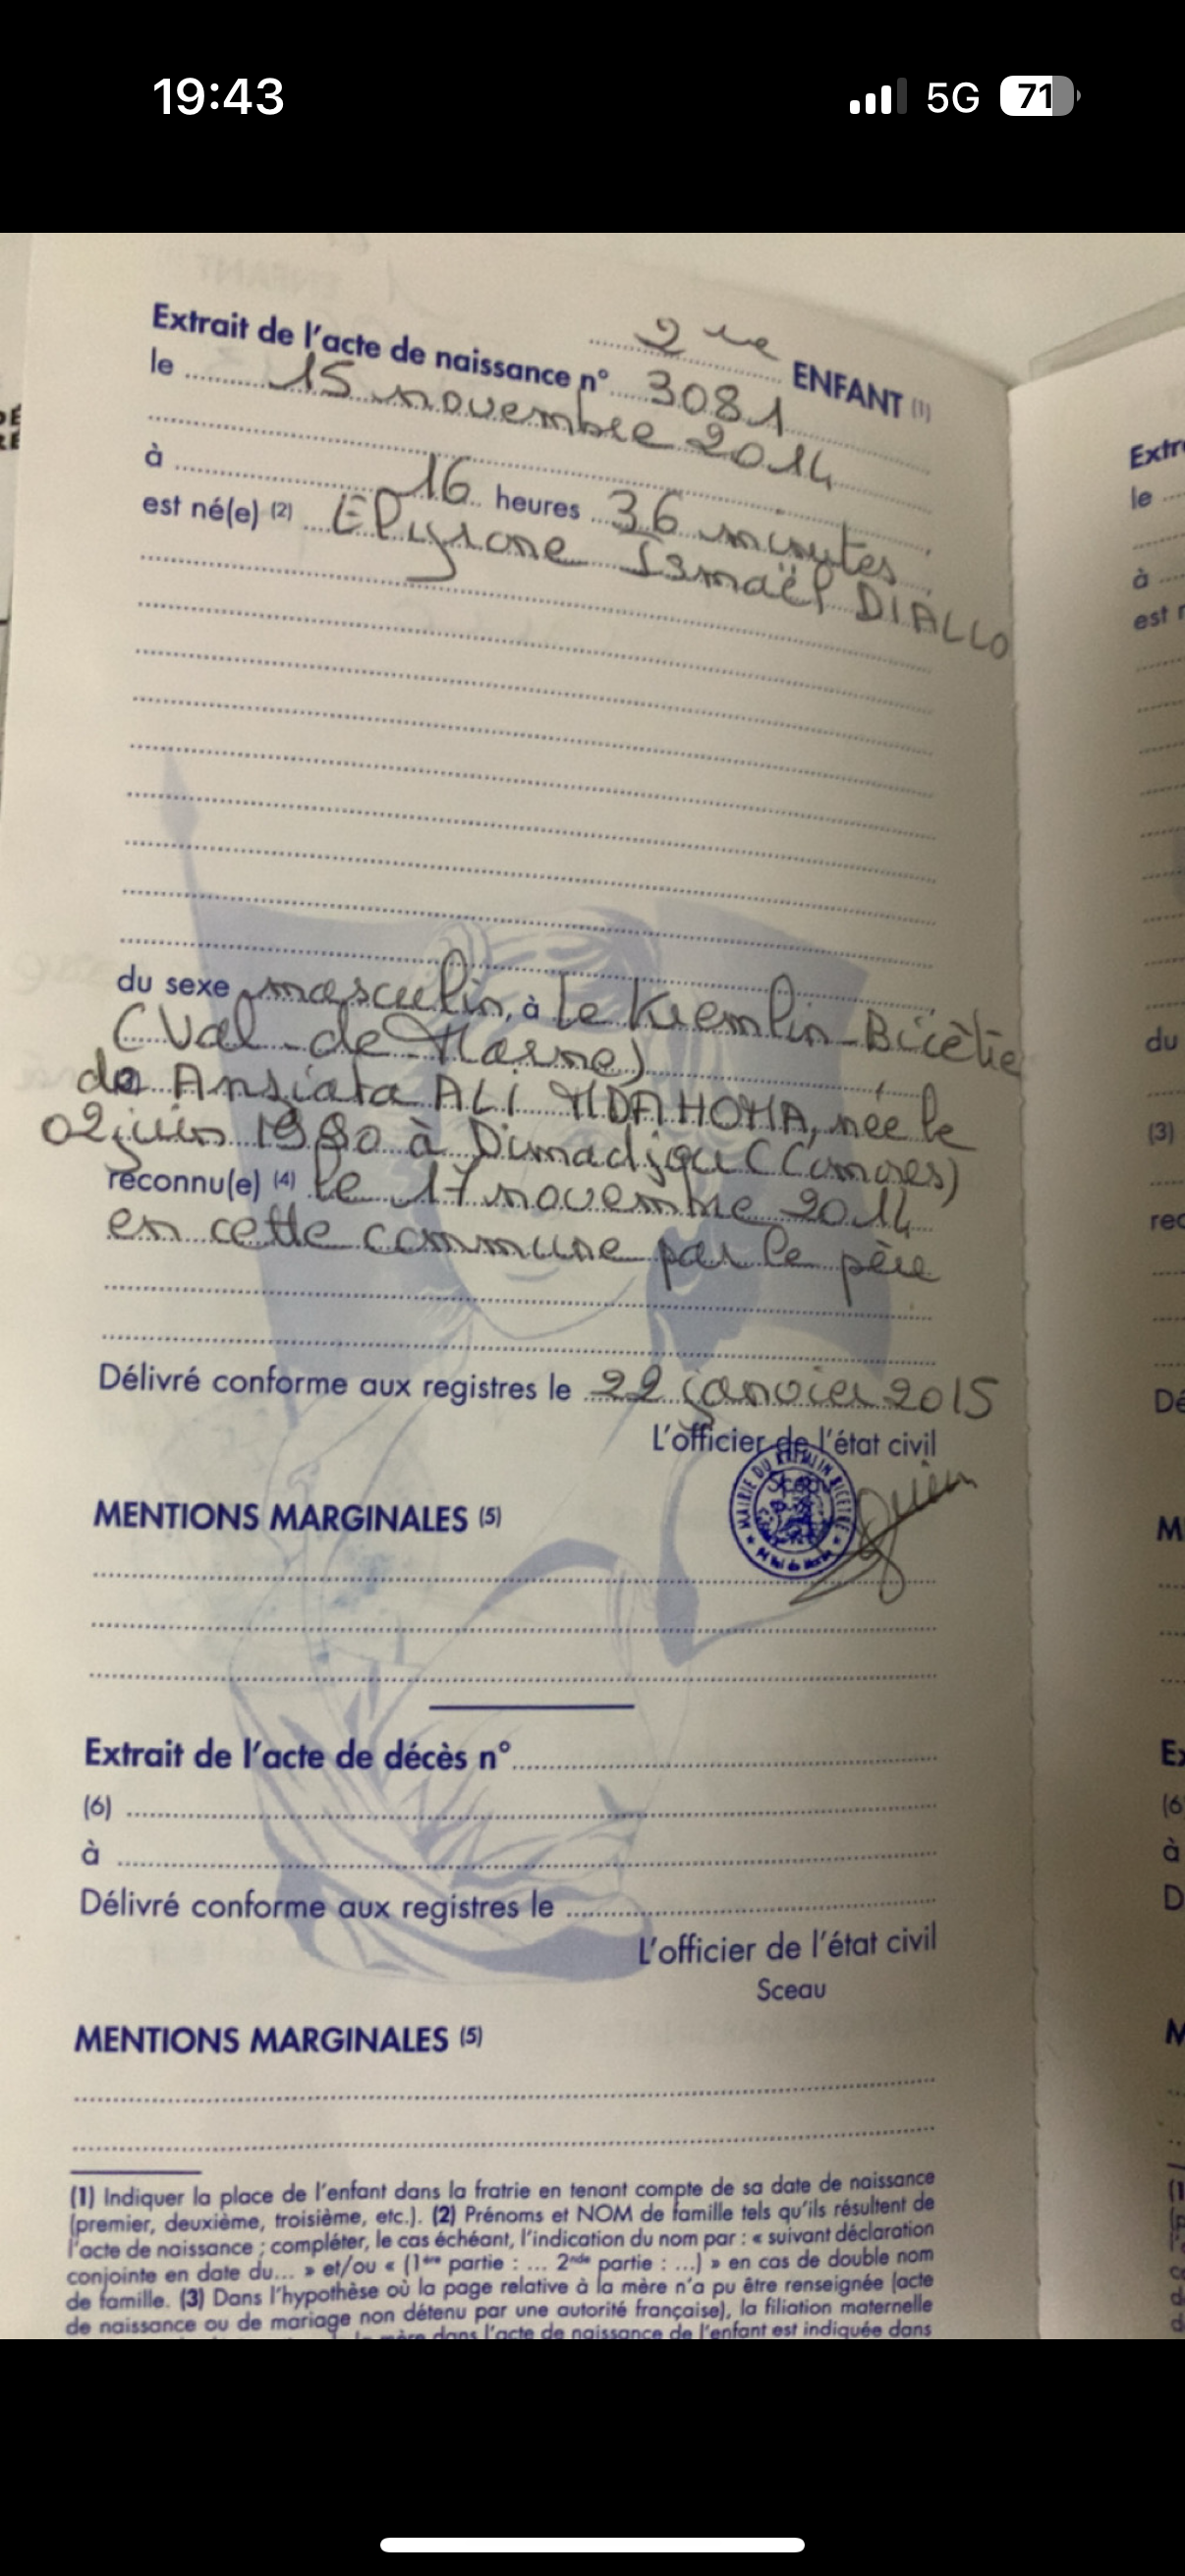 19:43
5G
71
2ème ENFANT (1)
Extrait de l'acte de naissance n° 3081
le 15 novembre 2014
à 16 heures 36 minutes
est né(e) (2) Elyrone Ismaël DIALLO
du sexe masculin, à Le Kremlin-Bicêtre
(Val-de-Marne)
de Ansiata ALI MDAHOMA, née le
02 juin 1980 à Dimadjou (Comores)
reconnu(e) (4) le 17 novembre 2014
en cette commune par le père
Délivré conforme aux registres le 22 janvier 2015
L'officier de l'état civil
MAIRIE DU KREMLIN BICETRE
Val de Marne
MENTIONS MARGINALES (5)
Extrait de l'acte de décès n°
(6)
à
Délivré conforme aux registres le
L'officier de l'état civil
Sceau
MENTIONS MARGINALES (5)
(1) Indiquer la place de l'enfant dans la fratrie en tenant compte de sa date de naissance
(premier, deuxième, troisième, etc.). (2) Prénoms et NOM de famille tels qu'ils résultent de
l'acte de naissance ; compléter, le cas échéant, l'indication du nom par : « suivant déclaration
conjointe en date du... » et/ou « (1ère partie : ... 2nde partie : ...) » en cas de double nom
de famille. (3) Dans l'hypothèse où la page relative à la mère n'a pu être renseignée (acte
de naissance ou de mariage non détenu par une autorité française), la filiation maternelle
mère dans l'acte de naissance de l'enfant est indiquée dans
Extr
le
à
est n
du
(3)
rec
Dé
M
Ex
(6
à
D
M